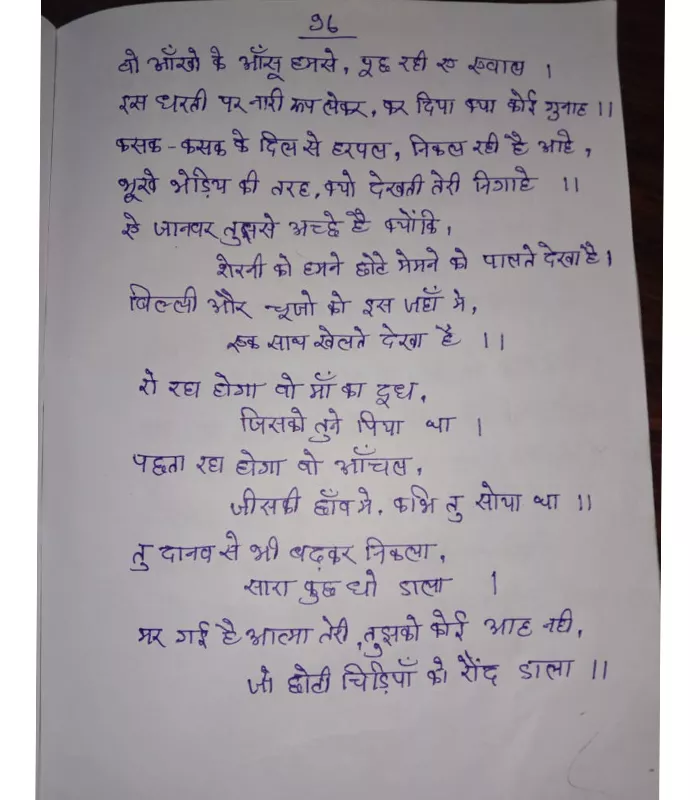 १६
वो आँखो के आँसू हमसे, पूछ रही रु स्वाल ।
इस धरती पर नारी रूप लेकर, कर दिया क्या कोई गुनाह ।।
कसक - कसक के दिल से हरपल, निकल रही है आहे ,
भूखे भेड़िय की तरह, क्यो देखती तेरी निगाहे ।।
जानवर तुझसे अच्छे है क्योंकि,
शेरनी को हमने छोटे मेमने को पालते देखा है ।
बिल्ली और चूजो को इस जहाँ मे,
एक साथ खेलते देखा है ।।
रो रहा होगा वो माँ का दूध,
जिसको तुने पिया था ।
पछता रहा होगा वो आँचल,
जीसकी छाँव मे, कभि तु सोया था ।।
तु दानव से भी बढ़कर निकला,
सारा कुछ धो डाला ।
मर गई है आत्मा तेरी, तुझको कोई आह नही,
जो छोटी चिड़ियाँ को रौंद डाला ।।